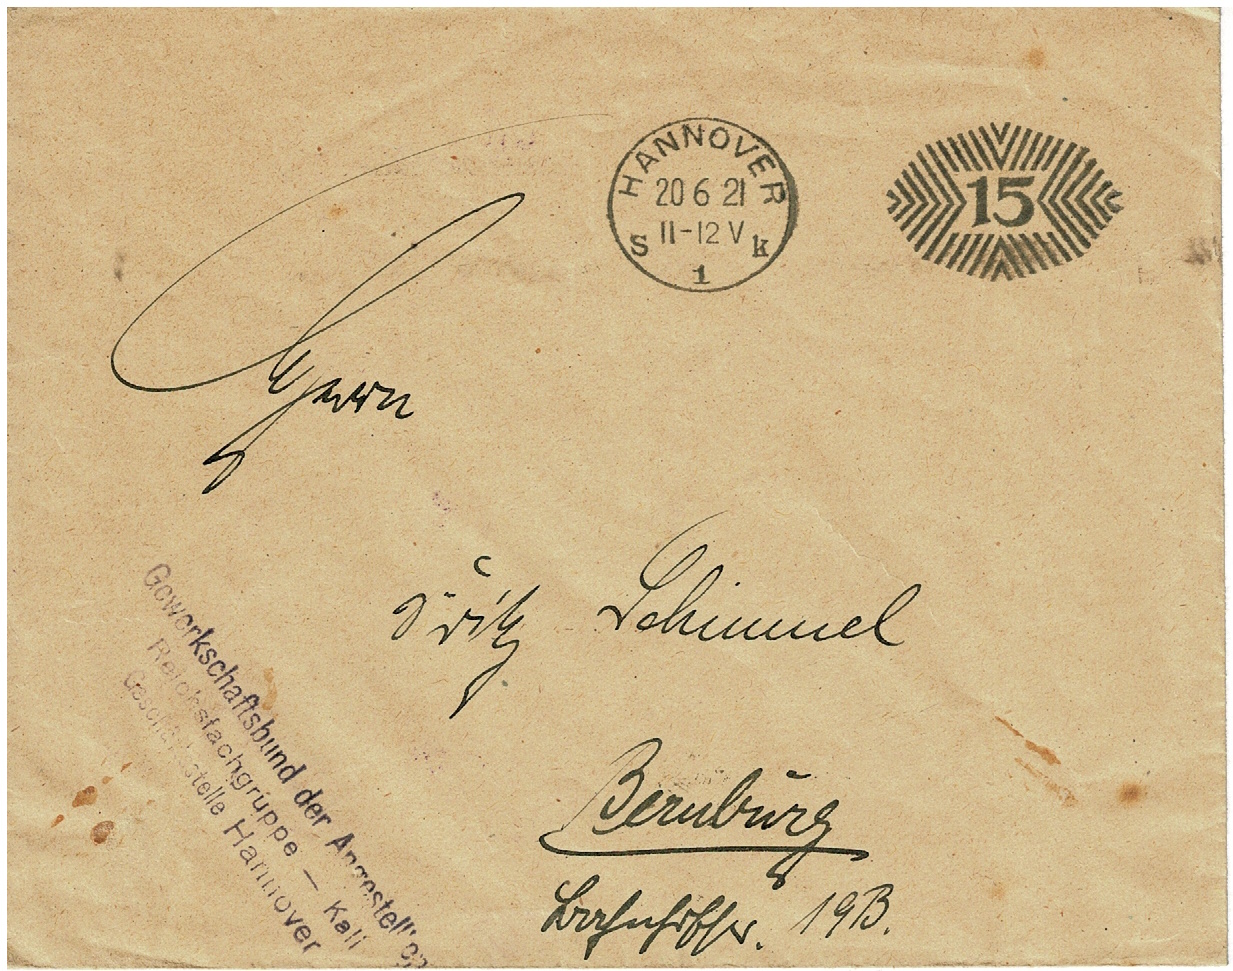 HANNOVER
20 6 21
11-12 V
S 1 k
15
Herrn
Fritz Schimmel
Bernburg
Bahnhofstr. 19B.
Gewerkschaftsbund der Angestellten
Reichsfachgruppe — Kali
Geschäftsstelle Hannover